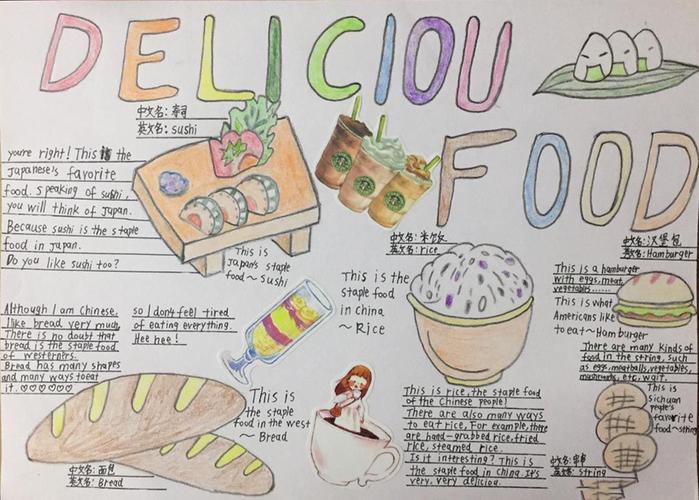 DELICIOU
FOOD
中文名: 寿司
英文名: sushi
you're right! This is the
Japanese's favorite
food. Speaking of sushi,
you will think of Japan.
Because sushi is the staple
food in Japan.
Do you like sushi too?
This is
Japan's staple
food~ Sushi
Although I am Chinese.
I like bread very much,
There is no doubt that
bread is the staple food
of westerners.
Bread has many shapes
and many ways to eat
it. ♡♡♡♡♡♡
so I don't feel tired
of eating everything.
Hee hee!
This is
the staple
food in the west
~ Bread
中文名: 面包
英文名: Bread
This is the
staple food
in China
~ Rice
中文名: 米饭
英文名: rice
This is rice, the staple food
of the Chinese people!
There are also many ways
to eat rice, For example, there
are hand-grabbed rice, fried
rice, steamed rice.
Is it interesting? This is
the staple food in China. It's
very, very deliciou.
中文名: 汉堡包
英文名: Hamburger
This is a hamburger
with eggs, meat,
vegetables......
This is what
Americans like
to eat~ Hamburger
There are many kinds of
food in the string, such
as eggs, meatballs, vegetables,
mushrooms, etc, wait.
This is
Sichuan
people's
favorite
food~string
中文名: 串串
英文名: string